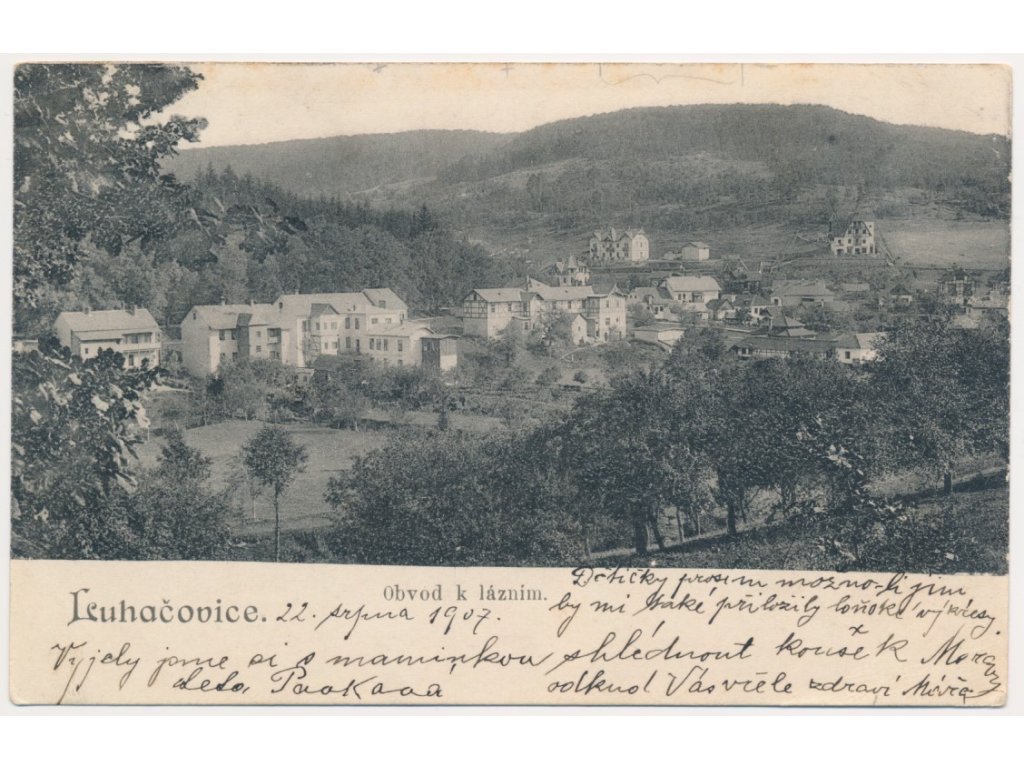 Obvod k lázním.
Luhačovice. 22. srpna 1907.
Dětičky prosím možno-li jim
by mi také přiložily loňské výkresy.
Vyjely jsme si s maminkou shlédnout kousek Moravy
odkud Vás vřele zdraví